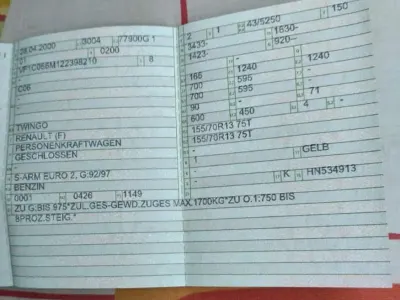 28.04.2000 3004 77900G 1
21 0200
VF1C066M122398210 - 8
-
C06
-
-
TWINGO
RENAULT (F)
PERSONENKRAFTWAGEN
GESCHLOSSEN
-
S-ARM EURO 2, G:92/97
BENZIN
0001 0426 1149
ZU G.BIS 975*ZUL.GES-GEWD.ZUGES MAX.1700KG*ZU O.1:750 BIS
8PROZ.STEIG.*
2 1 43/5250 150
3433- 1630-
1423- 920--
- -
165 1240 1240
700 595 595
700 - -
90 - 71
600 450 4 -
155/70R13 75T
155/70R13 75T
-
-
1 GELB
-
K HN534913